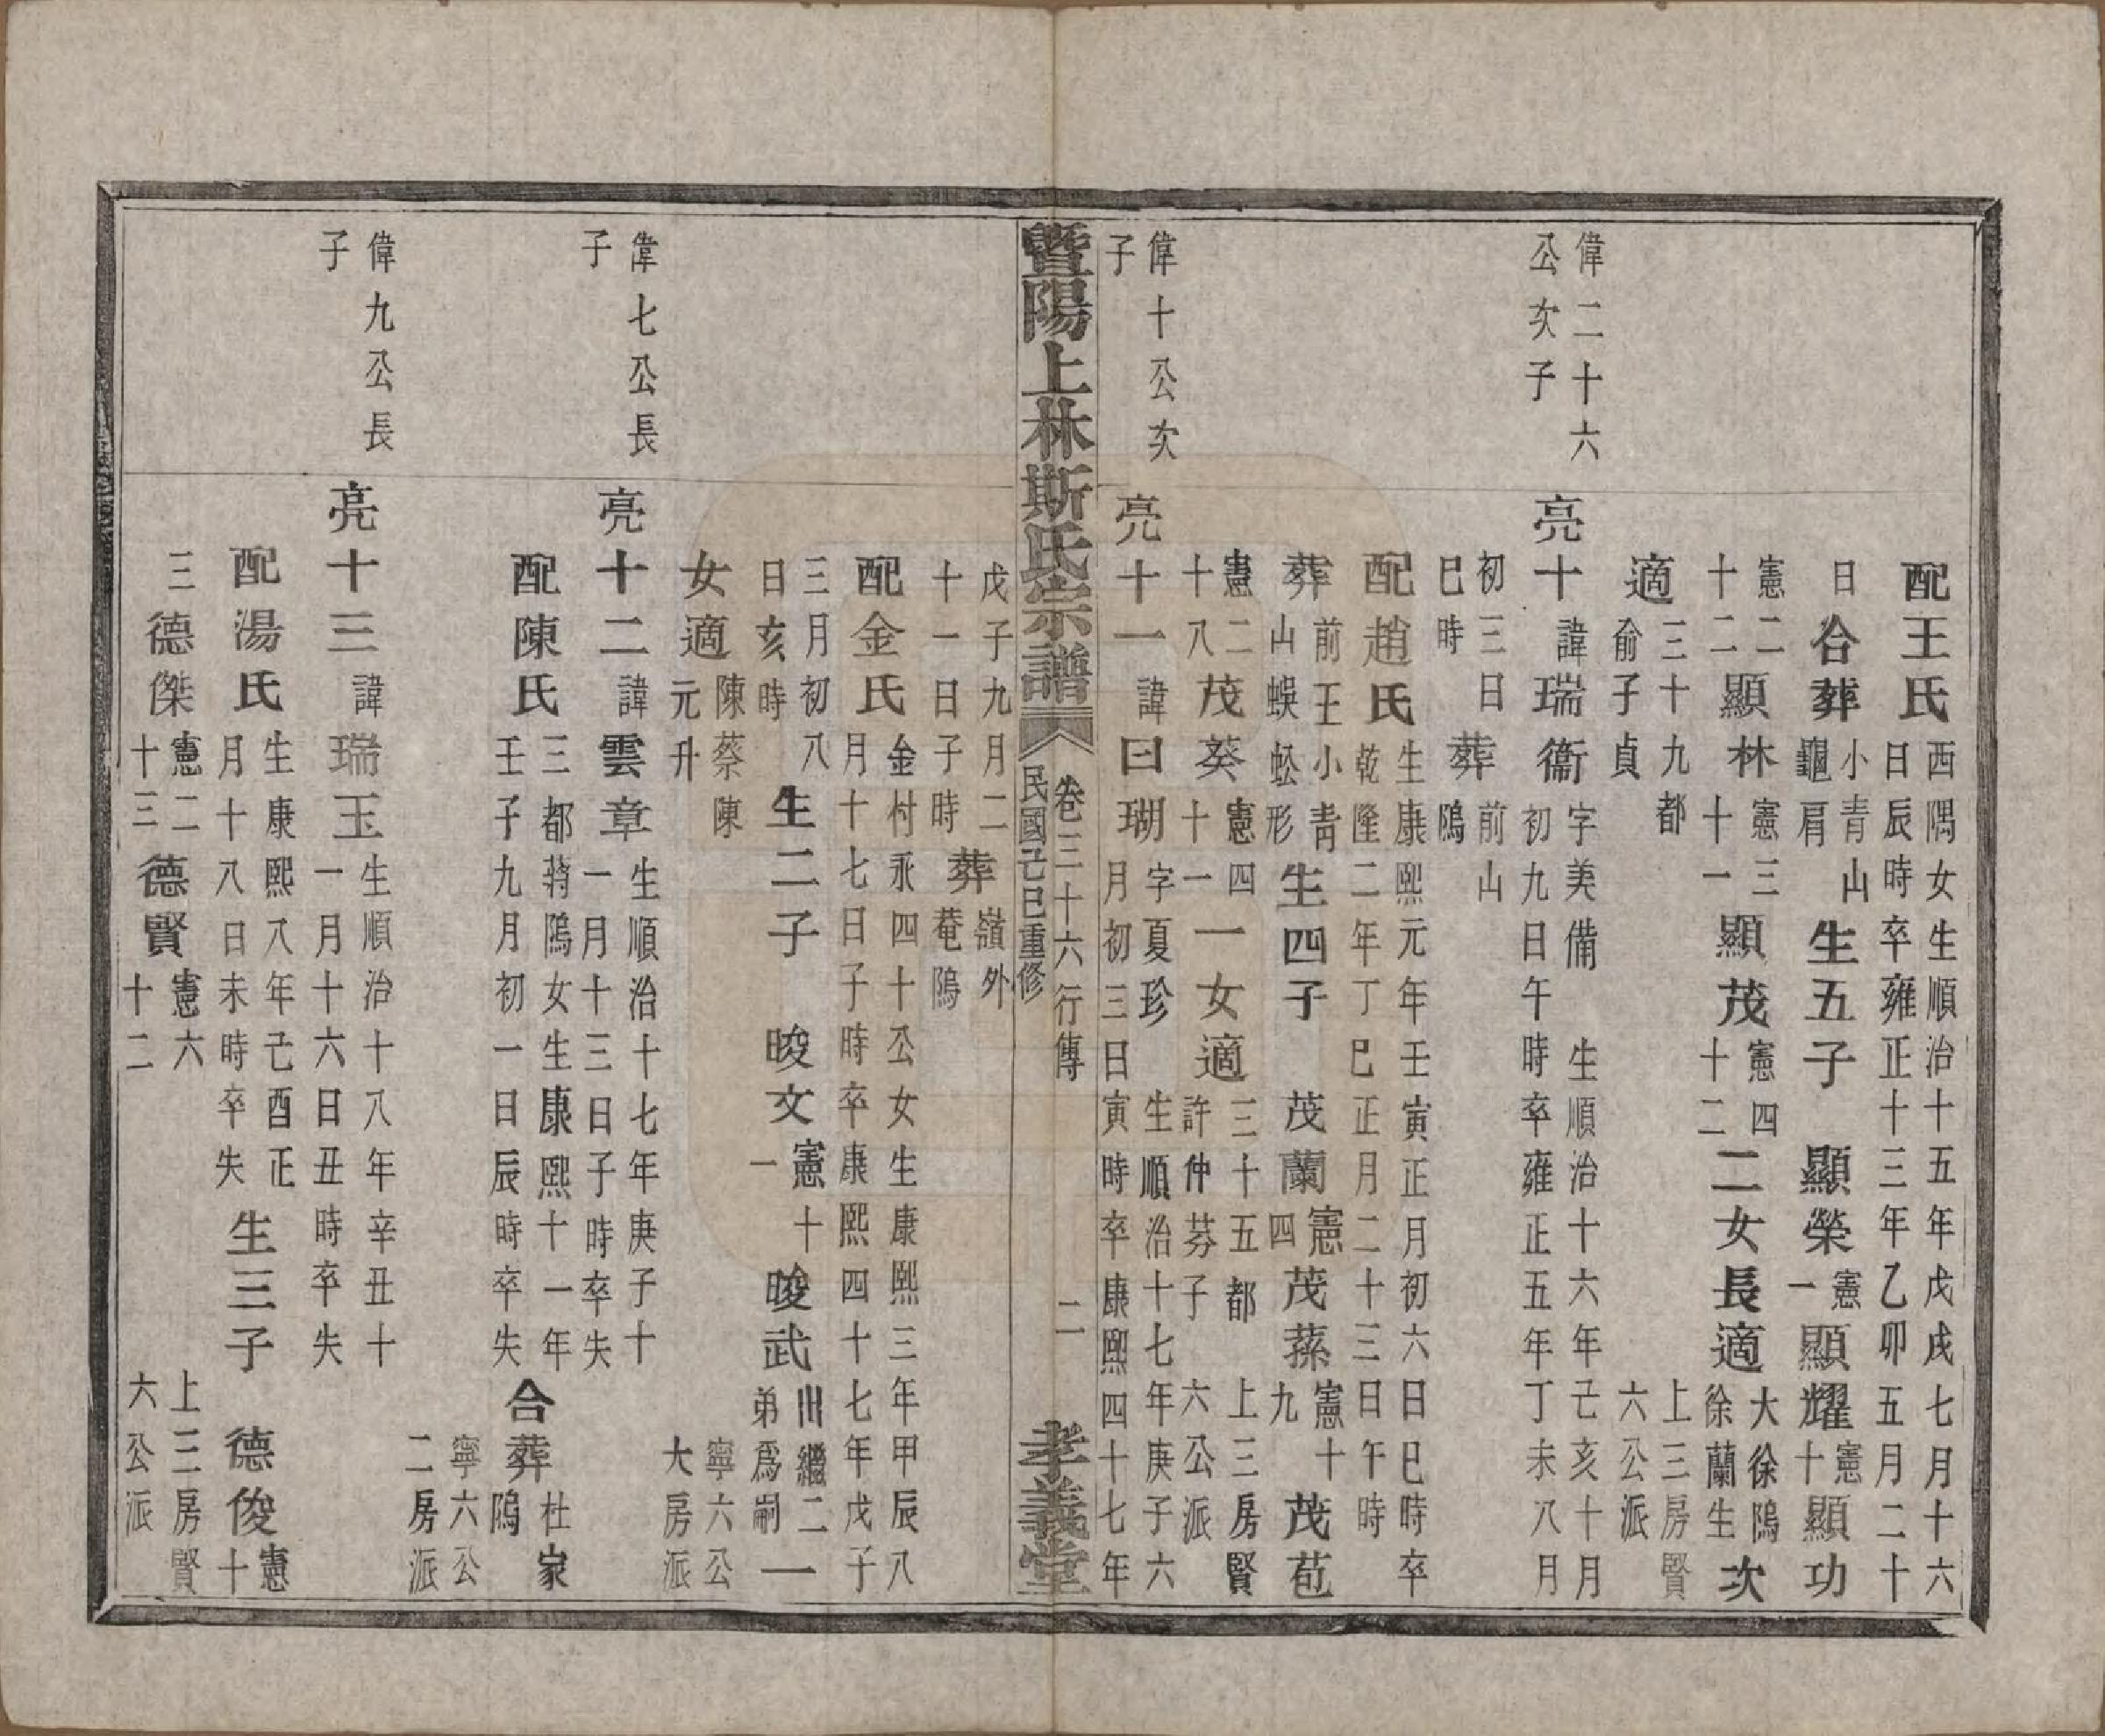 配王氏西隅女生順治十五年戊戌七月十六
日辰時卒雍正十三年乙卯五月二十
日合葬小青山龜肩生五子 顯榮憲一顯耀憲十顯功
憲二十二顯林憲三十一顯茂憲四十二二女長適大徐隖徐蘭生次
適三十九都俞子貞 上三房賢六公派
偉二十六公次子
亮十諱瑞衞字美備 生順治十六年己亥十月
初九日午時卒雍正五年丁未八月
初三日巳時葬前山隖
配趙氏生康熙元年壬寅正月初六日巳時卒
乾隆二年丁巳正月二十三日午時
葬前王小青山蜈蚣形生四子 茂蘭憲四茂蓀憲十九茂苞
憲二十八茂葵憲四十一一女適三十五都許仲芬子 上三房賢六公派
偉十公次子
亮十一諱曰瑚字夏珍 生順治十七年庚子六
月初三日寅時卒康熙四十七年
暨陽上林斯氏宗譜 卷三十六行傳 民國己巳重修 二 孝義堂
戊子九月二十一日子時葬嶺外菴隖
配金氏金村永四十公女生康熙三年甲辰八
月十七日子時卒康熙四十七年戊子
三月初八日亥時生二子 晙文憲十一晙武出繼二弟爲嗣一
女適陳蔡陳元升 寧六公大房派
偉七公長子
亮十二諱雲章生順治十七年庚子十
一月十三日子時卒失
配陳氏三都蔣隖女生康熙十一年
壬子九月初一日辰時卒失合葬杜家隖
寧六公二房派
偉九公長子
亮十三諱瑞玉生順治十八年辛丑十
一月十六日丑時卒失
配湯氏生康熙八年己酉正
月十八日未時卒失生三子 德俊憲十
三德傑憲二十三德賢憲六十二 上三房賢六公派